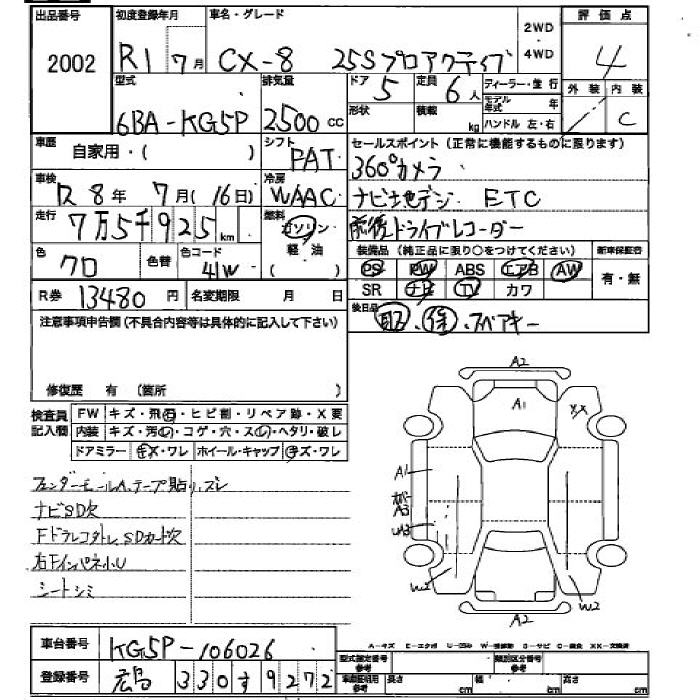 出品番号 初度登録年月 車名・グレード 2WD 評価点
2002 R1 7月 CX-8 25Sプロアクティブ 4WD 4
型式 排気量 ドア 5 定員 6人 ディーラー・並行 外装 内装
6BA-KG5P 2500cc 形状 積載 kg モデル年式 年 ハンドル 左・右 C
車歴 自家用・( ) シフト PAT セールスポイント (正常に機能するものに限ります)
360°カメラ
車検 R 8年 7月(16日) 冷房 WAAC ナビ地デジ ETC
走行 7万5千925km 燃料 ガソリン 軽油 ( ) 前後ドライブレコーダー
色 クロ 色替 色コード 41W 装備品 (純正品に限り○をつけてください) 新車保証書
PS PW ABS エアB AW 有・無
R券 13480円 名変期限 月 日 SR ナビ TV カワ
注意事項申告欄 (不具合内容等は具体的に記入して下さい) 後日品 取・保・スペアキー
修復歴 有 (箇所 )
検査員記入欄 FW キズ・飛石・ヒビ割・リペア跡・X要
内装 キズ・汚れ・コゲ・穴・スレ・ヘタリ・破レ
ドアミラー キズ・ワレ ホイール・キャップ キズ・ワレ
フェンダーモールA、テープ貼り、ズレ
ナビSD欠
FドラレコタトレSDカード欠
右FインパネホU
シートシミ
A2
A1 XX
A1
A3
W2 W2
A2
車台番号 KG5P-106026
A-キズ E-エクボ U-凹み W-補修跡 S-サビ C-腐食 XX-交換済
型式指定番号 参考 類別区分番号 参考
登録番号 広島 330す9272 車庫証明用 参考 長さ cm 幅 cm 高さ cm